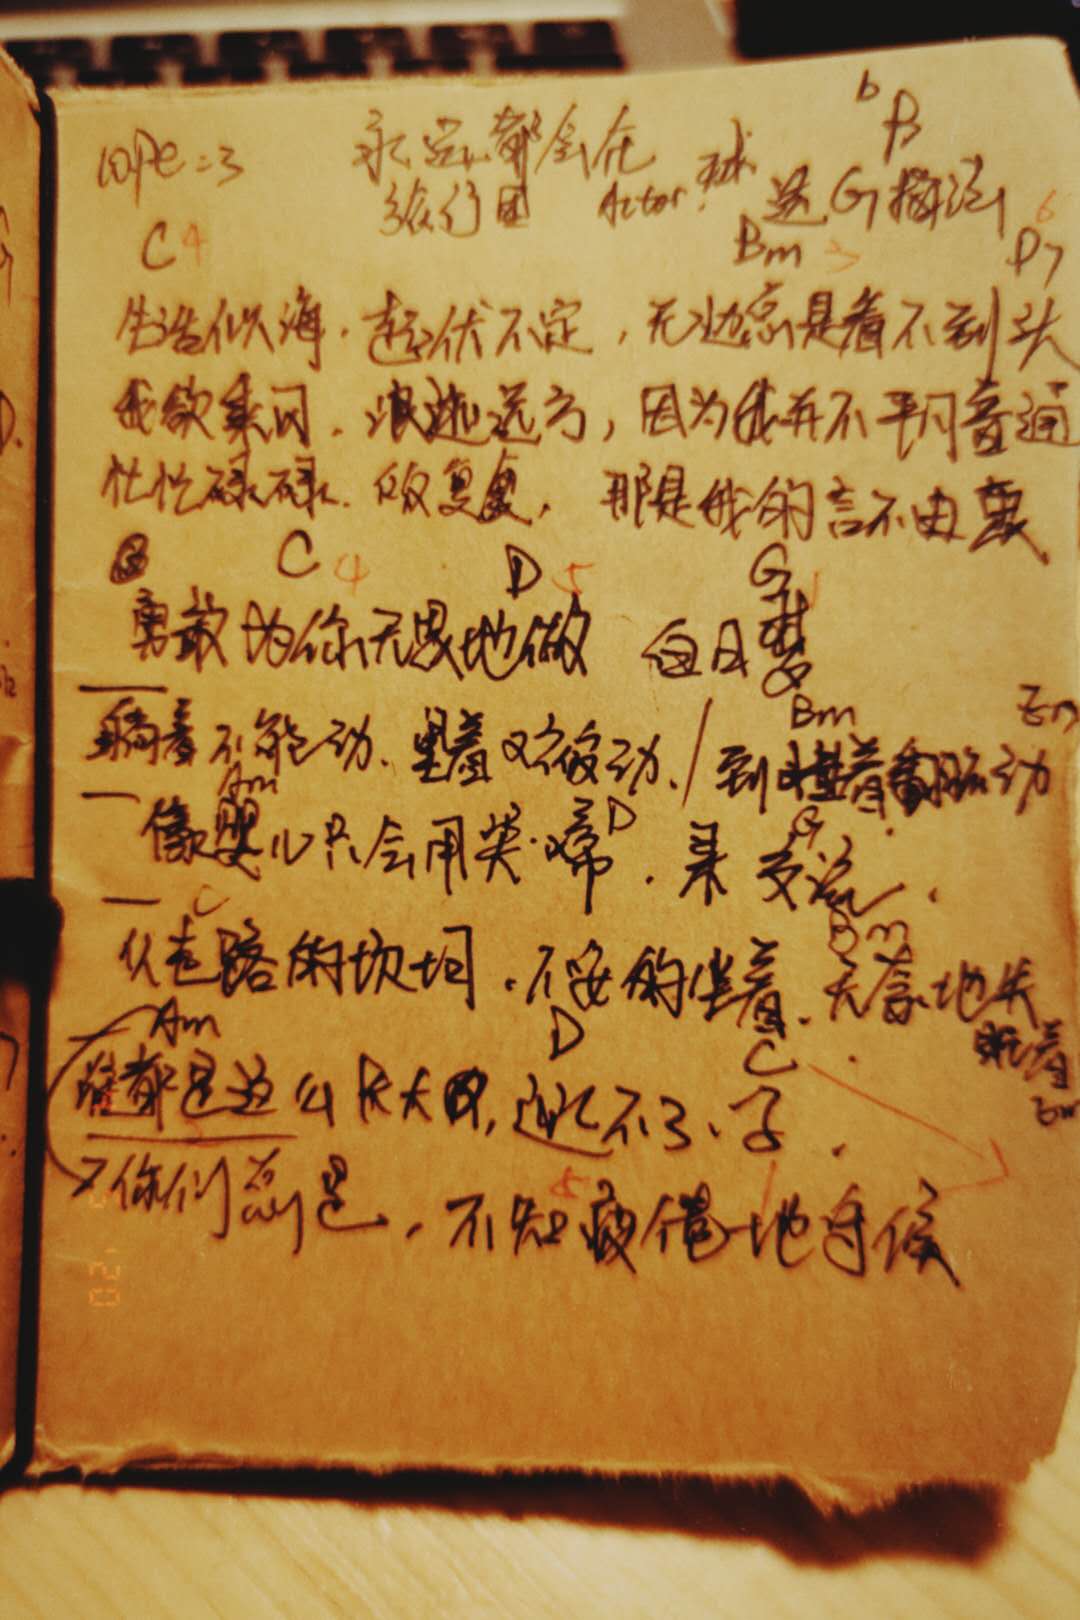 永远都会在 ♭B
cape=3 旅行团 Actor: 选G指法
C 4 Bm 3 D7 6
生活似海.起伏不定,无边总是看不到头
我欲乘风.浪迹远方,因为我并不平凡普通
忙忙碌碌. 复复, 那是我的言不由衷
C 4 D 5 G 1
勇敢为你无畏地做 白日梦
Bm Em
躺着不能动、坐着又不敢动、/到 着 动
Am D G
像婴儿只会用哭啼.来交流.
C Bm
从走路的坎坷.不安的坐着.无 地失
眠着
Am D C Em
谁都是这么 大的, 不了.子.
你们总是,不知疲倦地守候
5 1